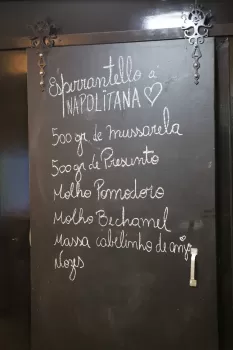 Esperrantello á
NAPOLITANA
500gr. de mussarela
500gr. de Presunto
Molho Pomodoro
Molho Bechamel
Massa cabelinho de anjo
Nozes